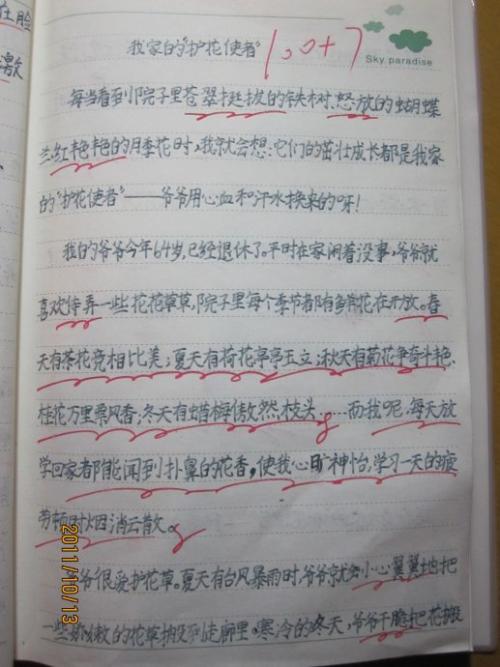 在脸
激
我家的"护花使者"
100+7
Sky paradise
每当看到院子里苍翠挺拔的铁树、怒放的蝴蝶
兰、红艳艳的月季花时,我就会想:它们的茁壮成长都是我家
的"护花使者"——爷爷用心血和汗水换来的呀!
我的爷爷今年64岁,已经退休了。平时在家闲着没事,爷爷就
喜欢侍弄一些花花草草,院子里每个季节都有鲜花在开放。春
天有茶花竞相比美;夏天有荷花亭亭玉立;秋天有菊花争奇斗艳、
桂花万里飘香;冬天有蜡梅傲然枝头……而我呢,每天放
学回家都能闻到扑鼻的花香,使我心旷神怡,学习一天的疲
劳顿时烟消云散。
爷很爱护花草。夏天有台风暴雨时,爷爷就会小心翼翼地把
一些娇嫩的花草搬到走廊里。寒冷的冬天,爷爷干脆把花搬
2011/10/13